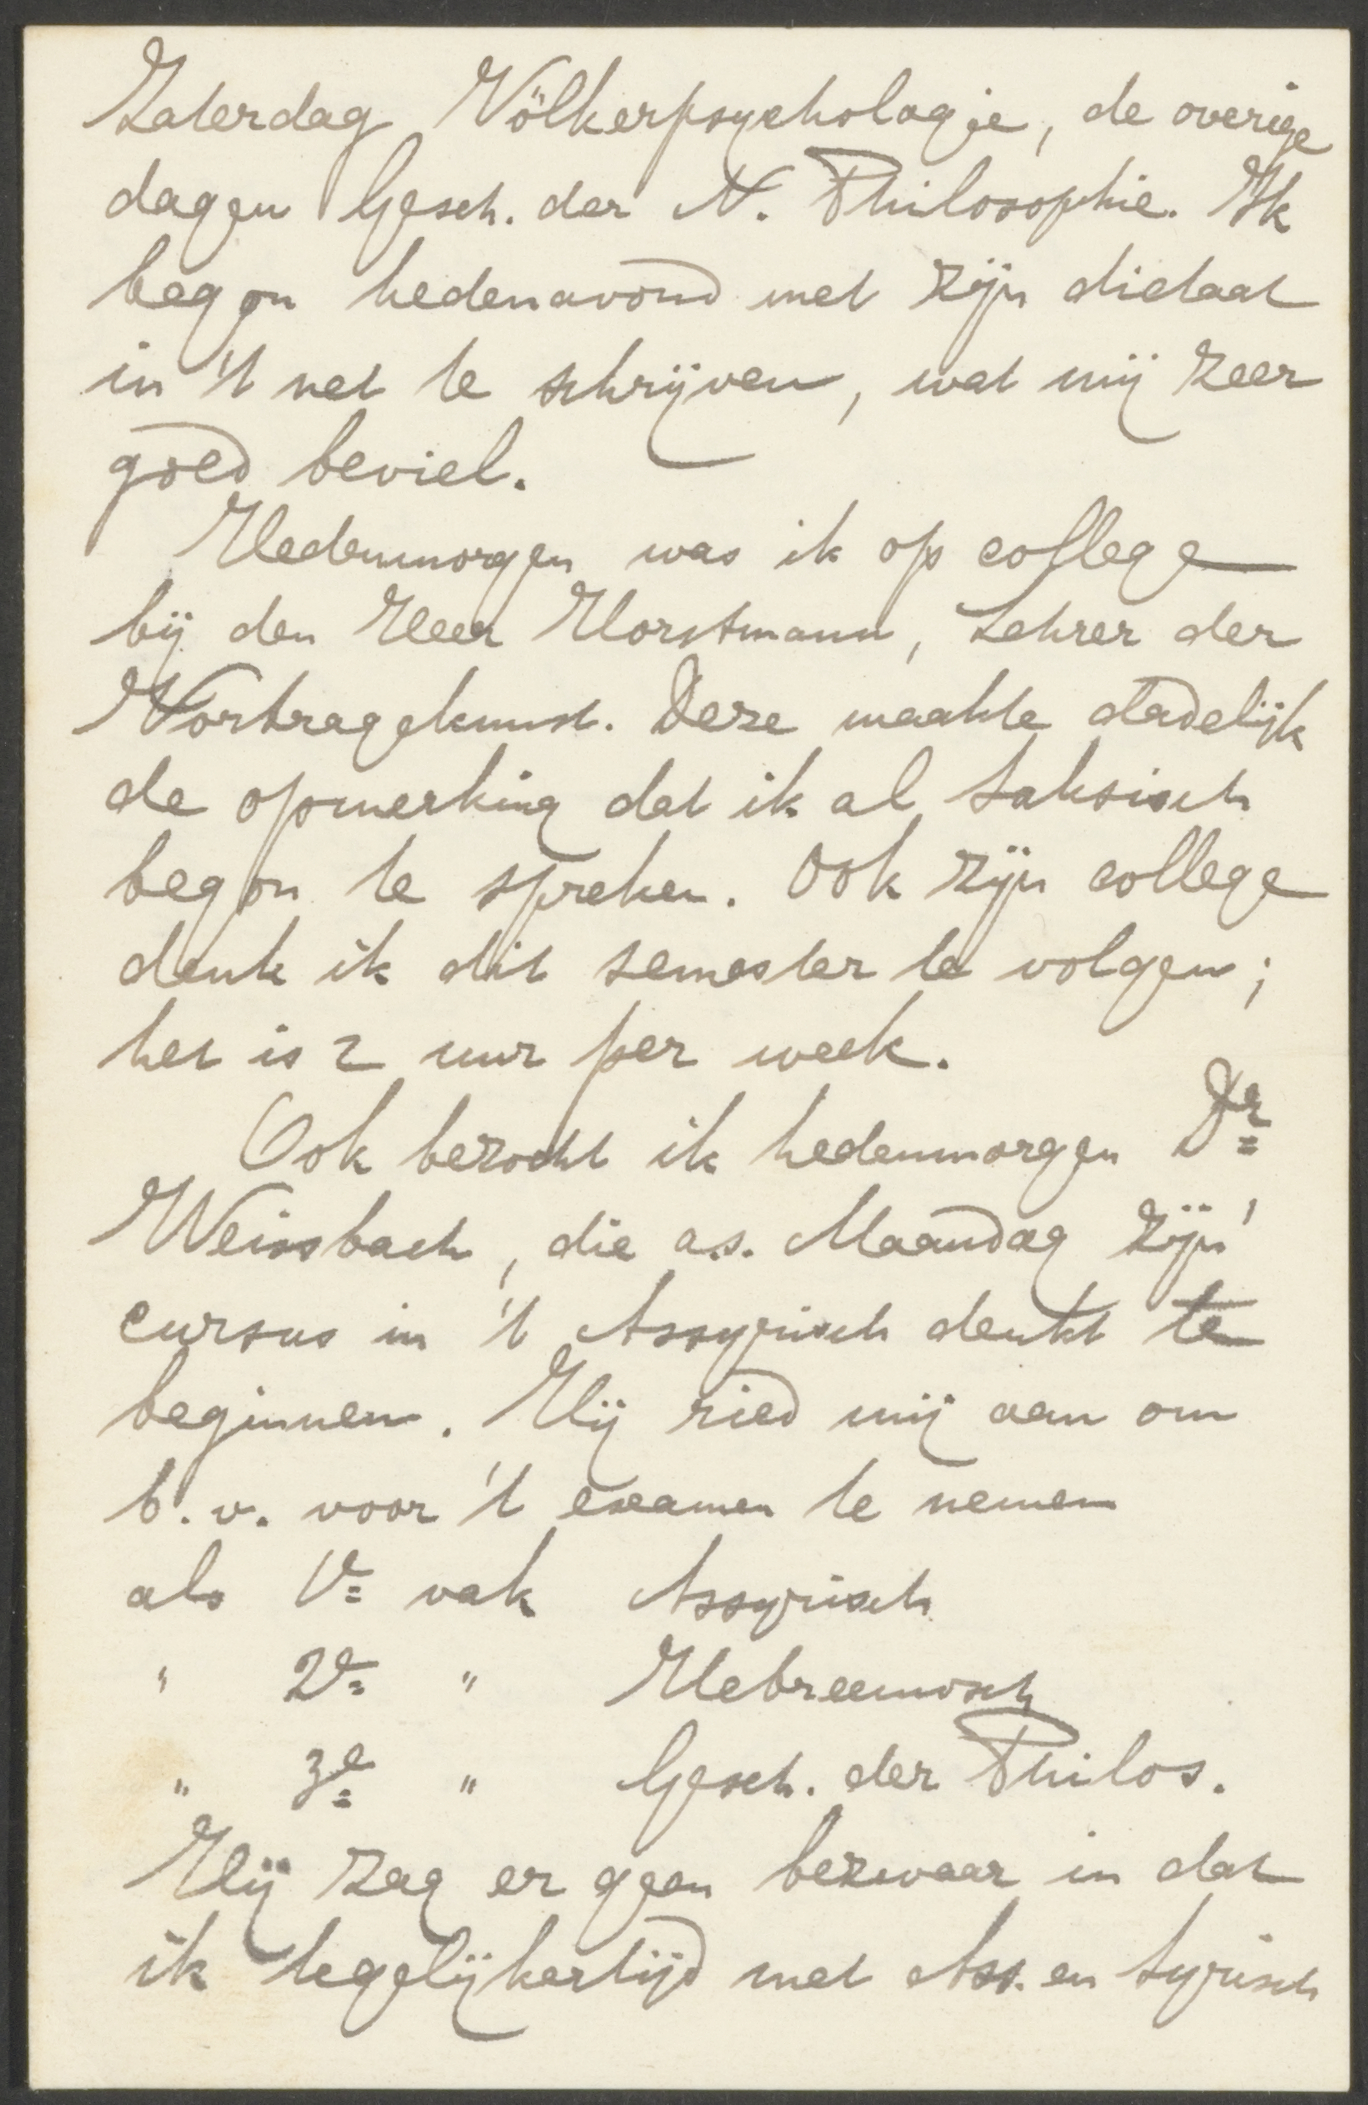 Zaterdag Völkerpsychologie, de overige
dagen Gesch. der N. Philosophie. Ik
begon hedenavond met zijn dictaat
in 't net te schrijven, wat mij zeer
goed beviel.
Hedenmorgen was ik op college
bij den Heer Horstmann, Lehrer der
Vortragskunst. Deze maakte dadelijk
de opmerking dat ik al Saksisch
begon te spreken. Ook zijn college
denk ik dit semester te volgen;
het is 2 uur per week.
Ook bezocht ik hedenmorgen Dr
Weissbach, die a.s. Maandag zijn
cursus in 't Assyrisch denkt te
beginnen. Hij ried mij aan om
b.v. voor 't examen te nemen
als 1e vak Assyrisch
" 2e " Hebreeuwsch
" 3e " Gesch. der Philos.
Hij zag er geen bezwaar in dat
ik tegelijkertijd met Ass. en Syrisch